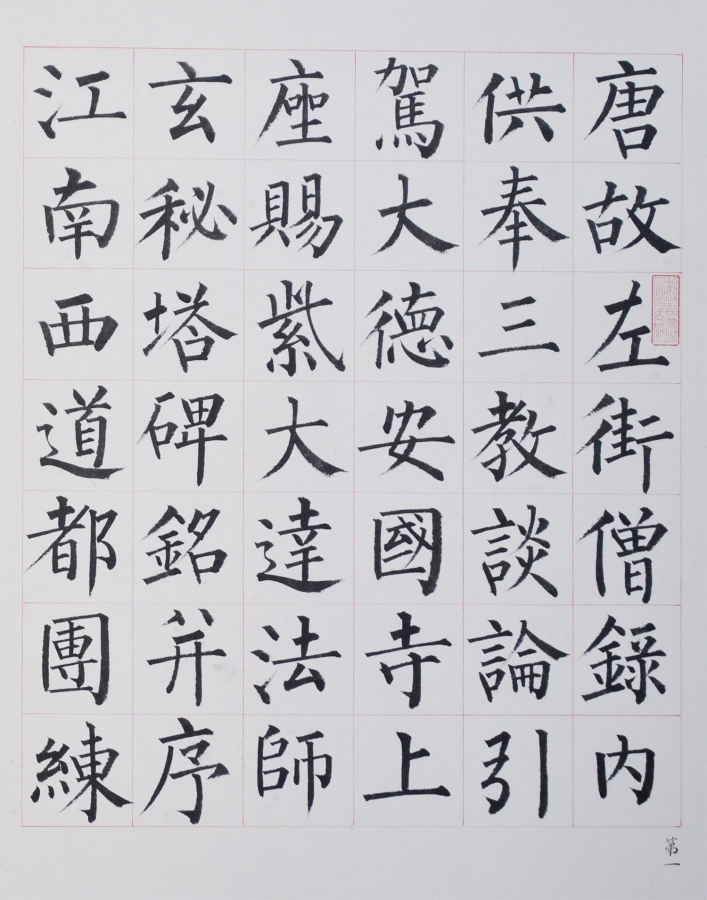 唐故左街僧錄內
供奉三教談論引
駕大德安國寺上
座賜紫大達法師
玄秘塔碑銘并序
江南西道都團練
第一